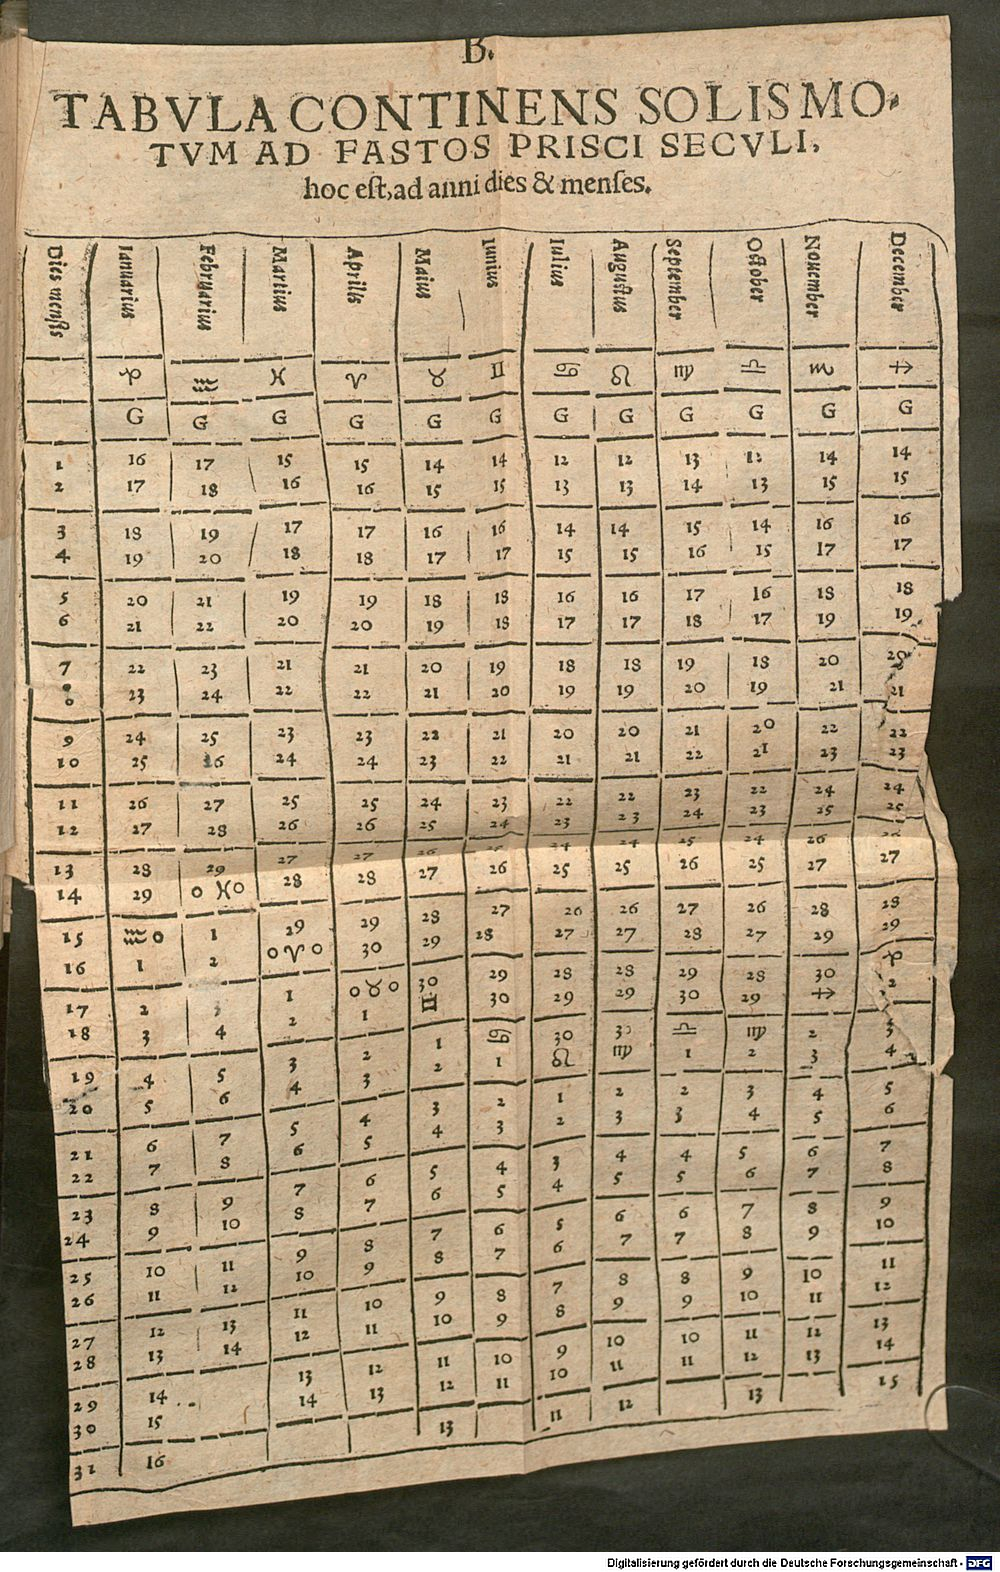 B.
TABVLA CONTINENS SOLIS MO-
TVM AD FASTOS PRISCI SECVLI,
hoc est, ad anni dies & menses.
Dies mensis Ianuarius Februarius Martius Aprilis Maius Iunius Iulius Augustus September October Nouember December
♑ ♒ ♓ ♈ ♉ ♊ ♋ ♌ ♍ ♎ ♏ ♐
G G G G G G G G G G G G
1 16 17 15 15 14 14 12 12 13 12 14 14
2 17 18 16 16 15 15 13 13 14 13 15 15
3 18 19 17 17 16 16 14 14 15 14 16 16
4 19 20 18 18 17 17 15 15 16 15 17 17
5 20 21 19 19 18 18 16 16 17 16 18 18
6 21 22 20 20 19 18 17 17 18 17 19 19
7 22 23 21 21 20 19 18 18 19 18 20
8 23 24 22 22 21 20 19 19 20 19 21 21
9 24 25 23 23 22 21 20 20 21 20 22 22
10 25 16 24 24 23 22 21 21 22 21 23 23
11 26 27 25 25 24 23 22 22 23 22 24 24
12 27 28 26 26 25 24 23 23 24 23 25 25
13 28 29 27 27 26 25 24 24 25 24 26 26
14 29 0 ♓ 0 28 28 27 26 25 25 26 25 27 27
15 ♒ 0 1 29 29 28 27 26 26 27 26 28 28
16 1 2 0 ♈ 0 30 29 28 27 27 28 27 29 29
17 2 3 1 0 ♉ 0 30 29 28 28 29 28 30 ♑
18 3 4 2 1 ♊ 30 29 29 30 29 ♐ 2
19 4 5 3 2 1 ♋ 30 30 ♎ ♍ 2 3
20 5 6 4 3 2 1 ♌ ♍ 1 2 3 4
21 6 7 5 4 3 2 1 2 2 3 4 5
22 7 8 6 5 4 3 2 3 3 4 5 6
23 8 9 7 6 5 4 3 4 4 5 6 7
24 9 10 8 7 6 5 4 5 5 6 7 8
25 10 11 9 8 7 6 5 6 6 7 8 9
26 11 12 10 9 8 7 6 7 7 8 9 10
27 12 13 11 10 9 8 7 8 8 9 10 11
28 13 14 12 11 10 9 8 9 9 10 11 12
29 14 13 12 11 10 9 10 10 11 12 13
30 15 14 13 12 11 10 11 11 12 13 14
31 16 13 11 12 13 15
Digitalisierung gefördert durch die Deutsche Forschungsgemeinschaft - DFG